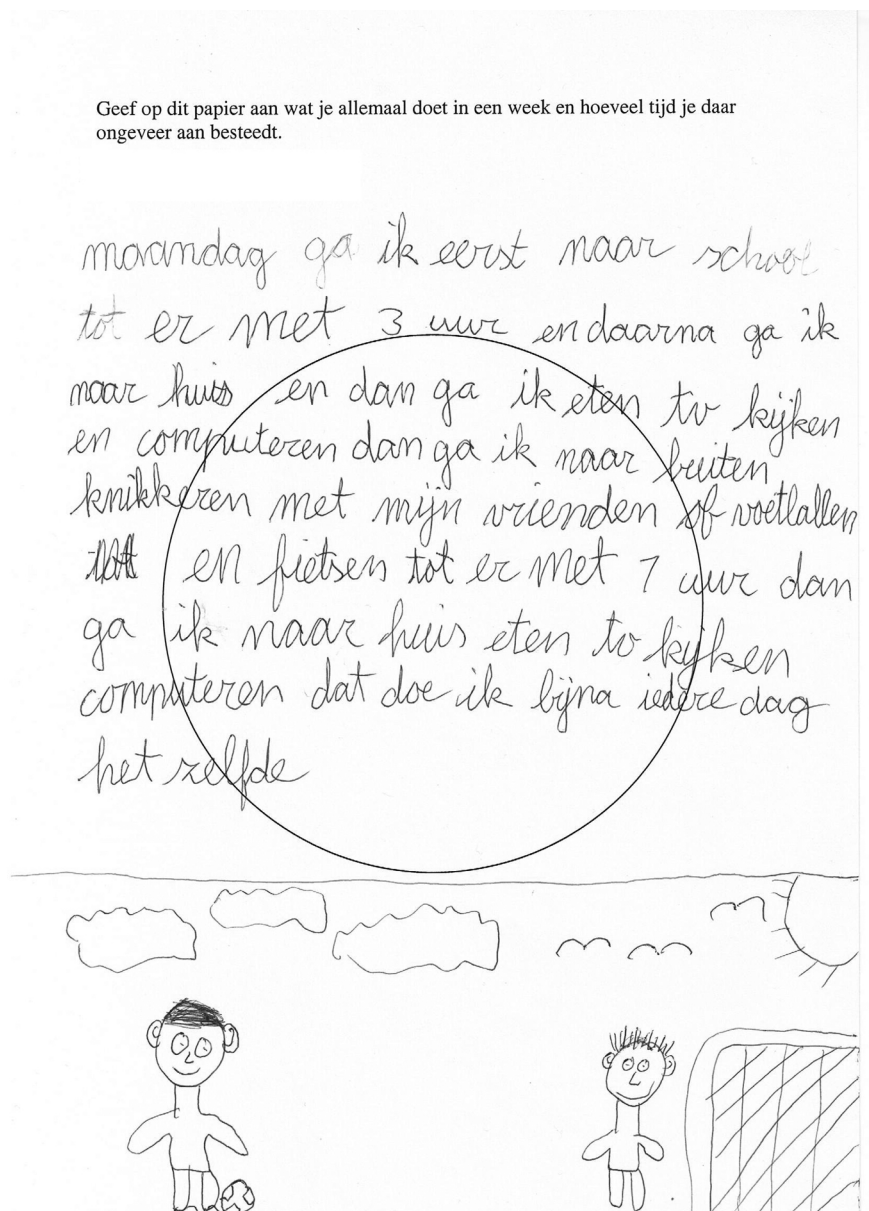 Geef op dit papier aan wat je allemaal doet in een week en hoeveel tijd je daar
ongeveer aan besteedt.
maandag ga ik eerst naar school
tot er met 3 uur en daarna ga ik
naar huis en dan ga ik eten tv kijken
en computeren dan ga ik naar buiten
knikkeren met mijn vrienden of voetlallen
en fietsen tot er met 7 uur dan
ga ik naar huis eten tv kijken
computeren dat doe ik bijna iedere dag
het zelfde